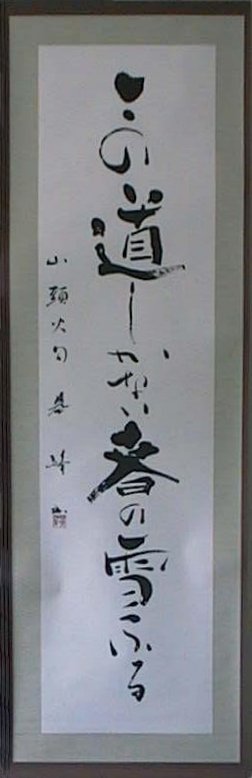 この道しかない春の雪ふる
山頭火句